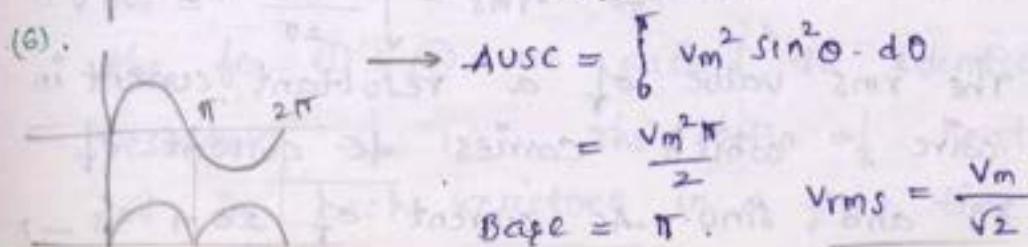 (6).
π 2π
→ AUSC = ∫₀^π Vm² Sin²θ · dθ
= Vm² π / 2
Base = π .
Vrms = Vm / √2